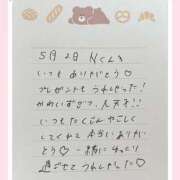 5月2日 Nくん
いつもありがとう♡
プレゼントもうれしかった!
かわいすぎっ、天才!!
いつもたくさんやさしく
してくれて本当にありが
とう♡一緒にまったり
過ごせてうれしかった♡